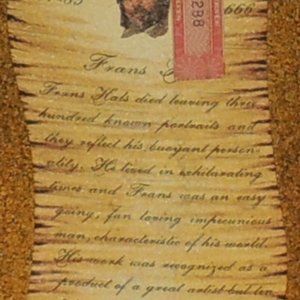 666
288
Frans
Frans Hals died leaving three
hundred known portraits and
they reflect his buoyant person-
ality. He lived in exhilarating
times and Frans was an easy
going, fun loving impecunious
man, characteristic of his world.
His work was recognized as a
product of a great artist but ten